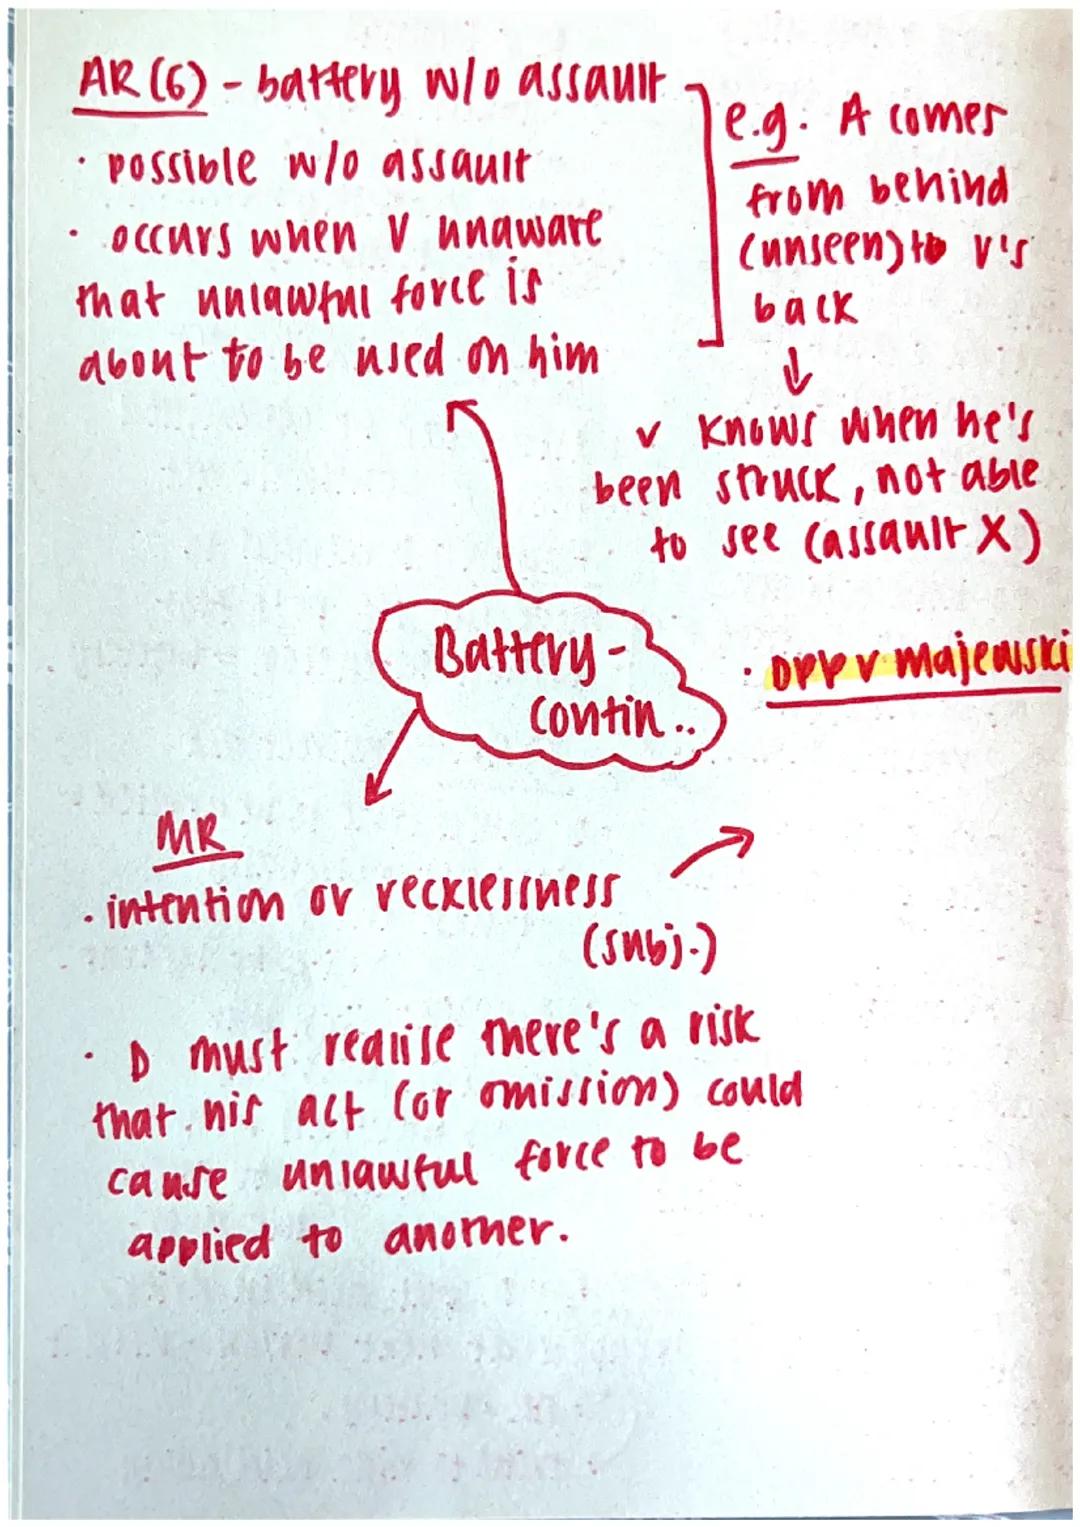 AR (6) - battery w/o assault
· possible w/o assault
· occurs when V unaware
that unlawful force is
about to be used on him
e.g. A comes
from behind
(unseen) to V's
back
↓
V knows when he's
been struck, not able
to see (assault X)
Battery -
contin..
· DPP v majewski
MR
· intention or recklessness
(subj.)
· D must realise there's a risk
that his act (or omission) could
cause unlawful force to be
applied to another.